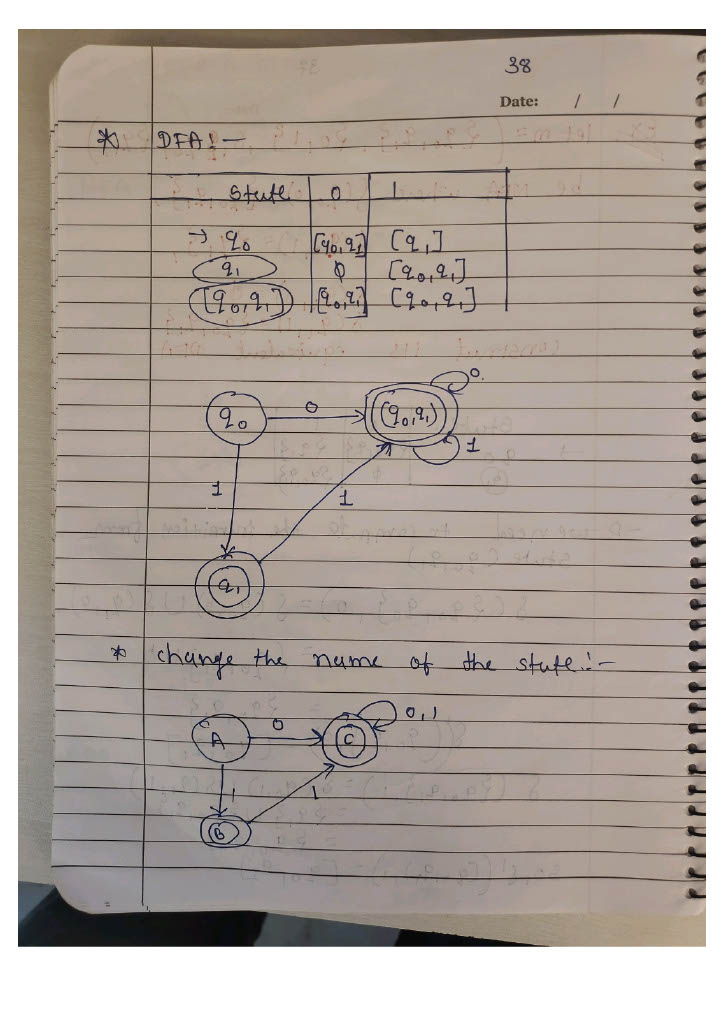 38
Date: / /
* DFA:-
State 0 1
→ q0 [q0,q1] [q1]
q1 ϕ [q0,q1]
[q0,q1] [q0,q1] [q0,q1]
0
q0 0 (q0,q1)
1
1 1
q1
* change the name of the state:-
0,1
A 0 C
1 1
B